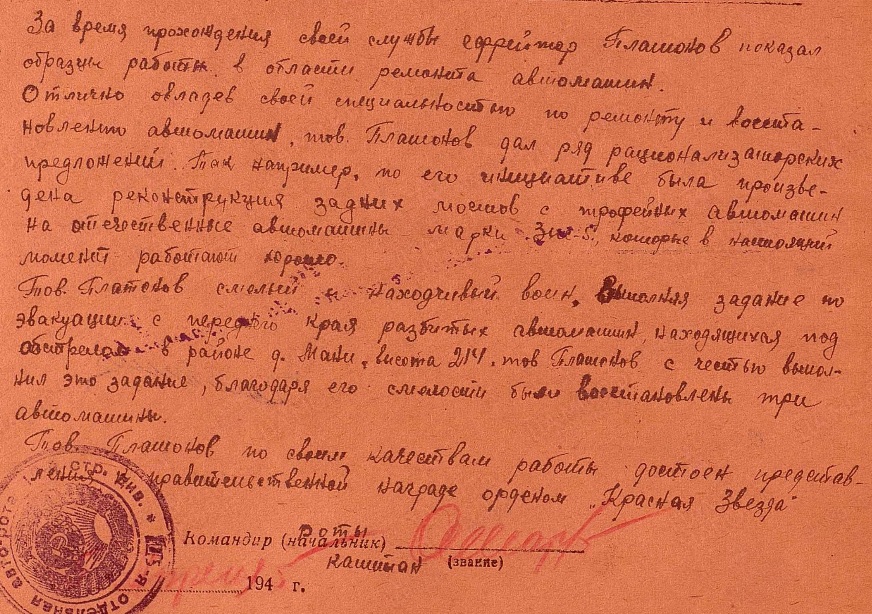 За время прохождения своей службы ефрейтор Платонов показал
образцы работы в области ремонта автомашин.
Отлично овладев своей специальностью по ремонту и восста-
новлению автомашин, тов. Платонов дал ряд рационализаторских
предложений. Так например, по его инициативе была произве-
дена реконструкция задних мостов с трофейных автомашин
на отечественные автомашины марки ЗИС-5, которые в настоящий
момент работают хорошо.
Тов. Платонов смелый и находчивый воин. Выполняя задание по
эвакуации с переднего края разбитых автомашин, находящихся под
обстрелом в районе д. Маки, высота 214, тов Платонов с честью выпол-
нил это задание, благодаря его смелости были восстановлены три
автомашины.
Тов. Платонов по своим качествам работы достоин представ-
ления к правительственной награде орденом „Красная Звезда"
роты
Командир (начальник)
капитан (звание)
194 г.
отдельная авто-рота стр. див.